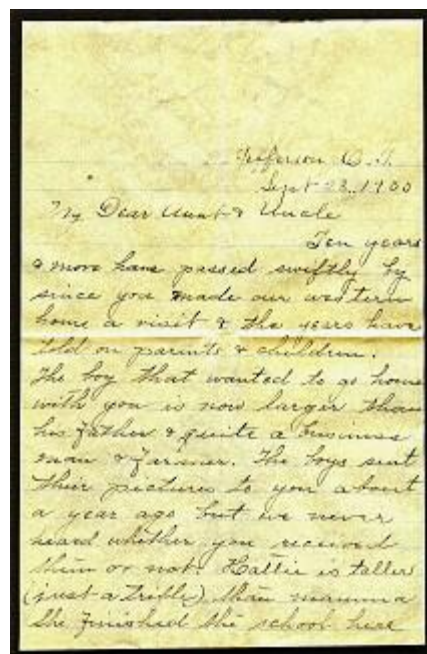 Jefferson O. T.
Sept 23, 1900
My Dear Aunt & Uncle
Ten years
& more have passed swiftly by
since you made our western
home a visit & the years have
told on parents & children.
The boy that wanted to go home
with you is now larger than
his father & quite a business
man & farmer. The boys sent
their pictures to you about
a year ago but we never
heard whether you received
them or not. Hattie is taller
(just a trifle) than mamma
She finished the school here